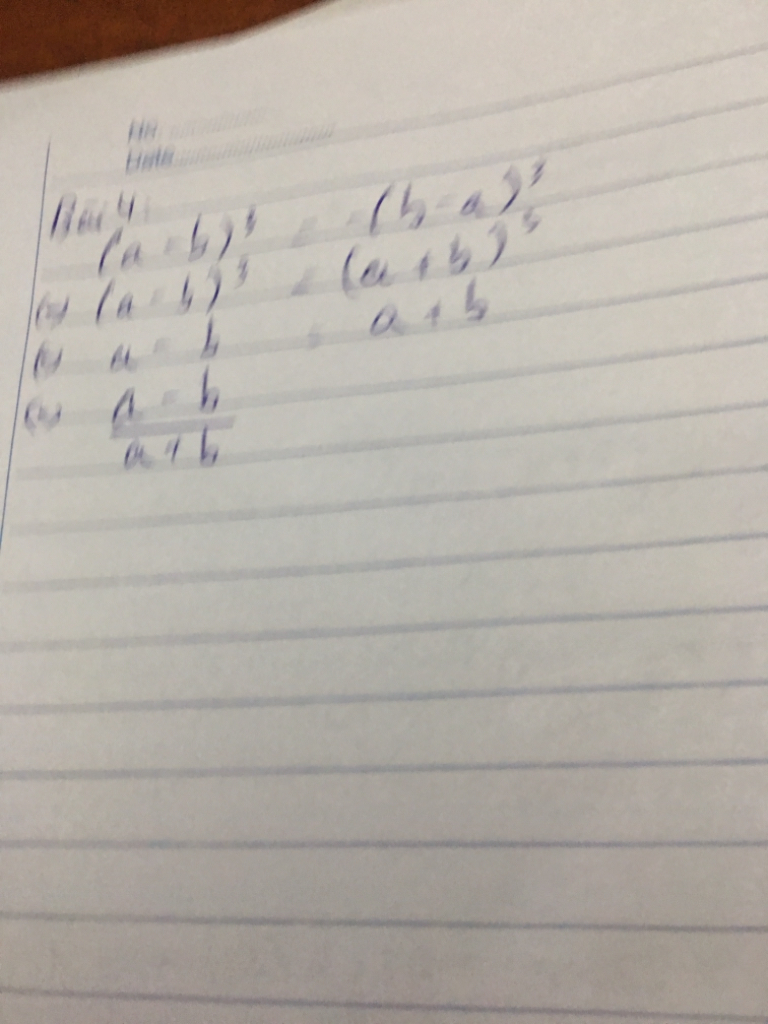 No.
Date
Bài 4:
(a - b)³ = -(b - a)³
(=) (a - b)³ = (a + b)³
(=) a - b = a + b
(=) a - b / a + b